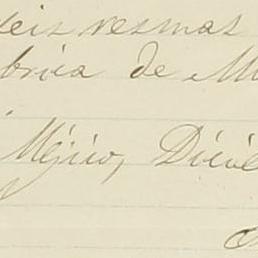 seis resmas
brica de M
Méjico, Dicie